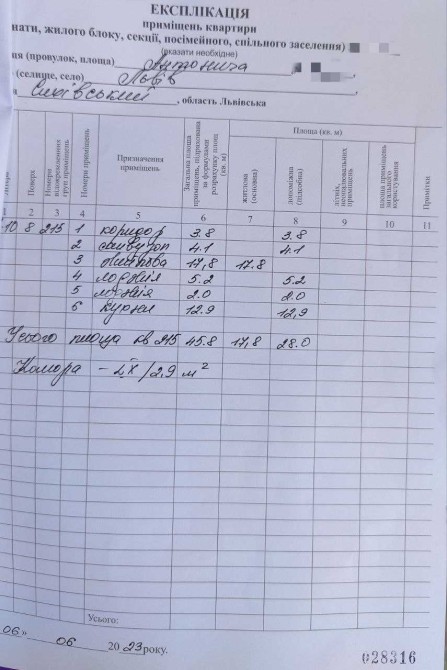 ЕКСПЛІКАЦІЯ
приміщень квартири
нати, жилого блоку, секції, посімейного, спільного заселення)
(вказати необхідне)
ця (провулок, площа) Антонича
(селище, село) Львів
Сихівський, область Львівська
Поверх
Номери відокремлених груп приміщень
Номери приміщень
Призначення приміщень
Загальна площа приміщень, підрахована за формулами розрахунку площ (кв. м)
Площа (кв. м)
житлова (основна)
допоміжна (підсобна)
літніх, неопалювальних приміщень
площа приміщень загального користування
Примітки
2 3 4 5 6 7 8 9 10 11
10 8 215 1 коридор 3.8 3.8
2 санвузол 4.1 4.1
3 житлова 17,8 17.8
4 лоджія 5.2 5.2
5 лоджія 2.0 2.0
6 кухня 12.9 12,9
Усього площа кв 215 45.8 17,8 28.0
Комора – /2,9 м²
Усього:
06» 06 2023 року.
028316